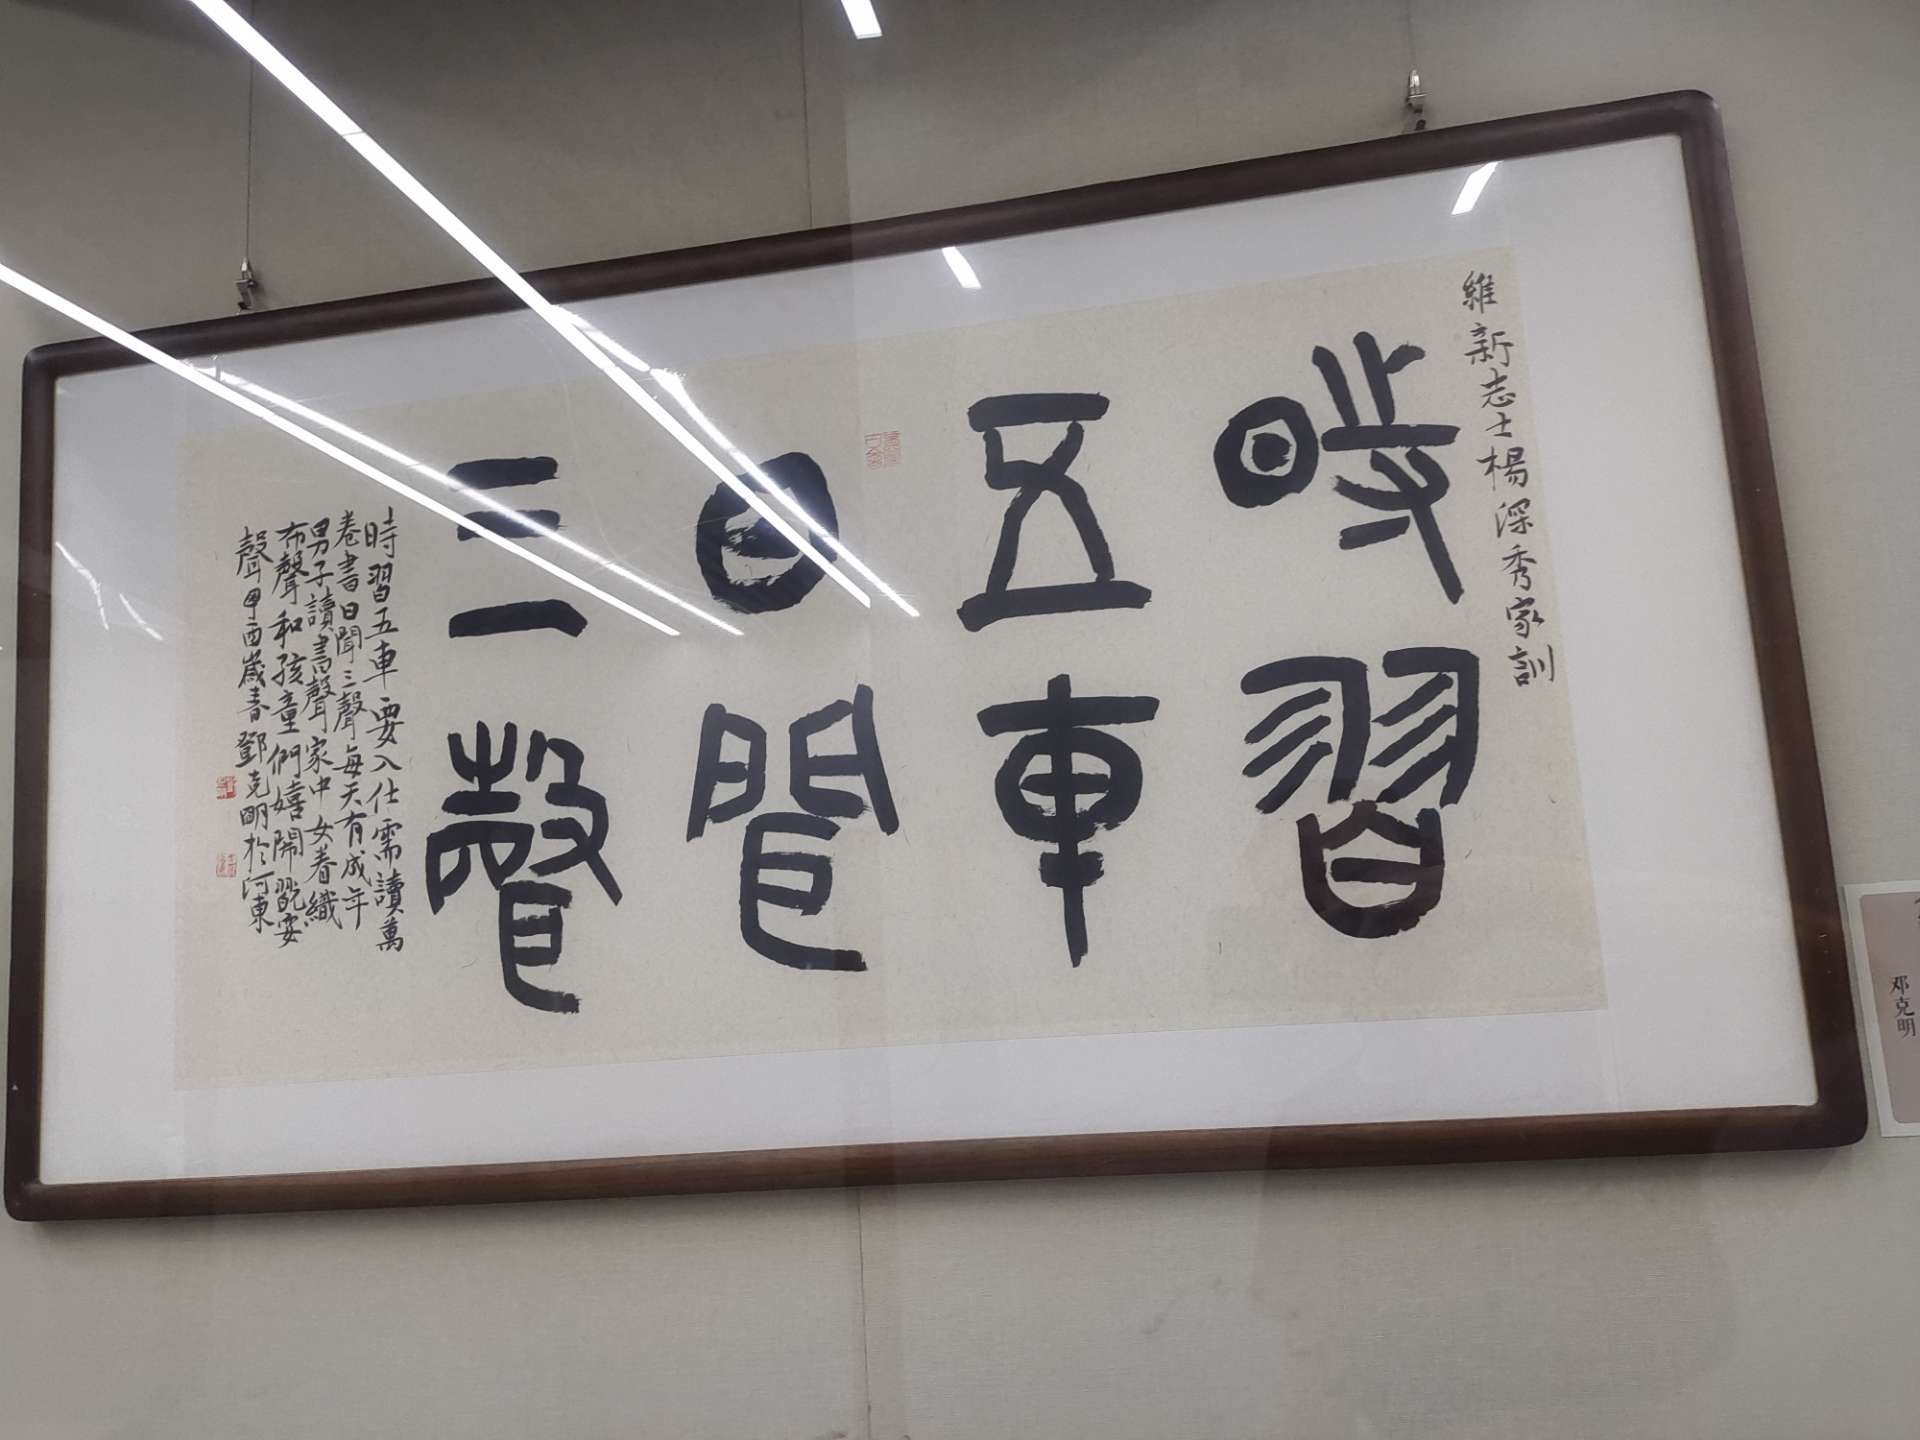 維新志士楊深秀家訓
時習
五車
日聞
三聲
時習五車要入仕需讀萬
卷書日聞三聲每天有成年
男子讀書聲家中女眷織
布聲和孩童們嬉鬧翫耍
聲 酉歲春鄧克明於河東
邓克明